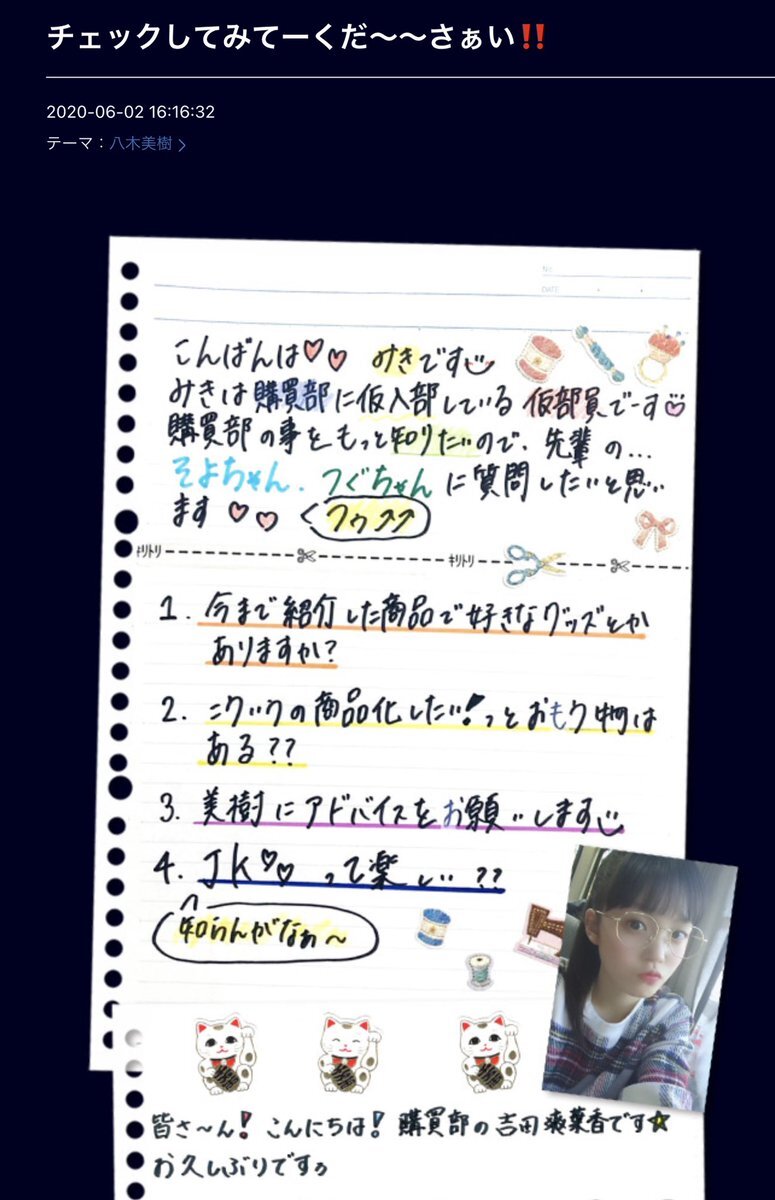 チェックしてみてーくだ〜〜さぁい‼️
2020-06-02 16:16:32
テーマ：八木美樹 >
No.
DATE
こんばんは♡♡ みきです
みきは購買部に仮入部している 仮部員でーす
購買部の事をもっと知りたいので、先輩の…
そよちゃん、つぐちゃんに質問したいと思い
ます♡♡ フゥ↗↗
キリトリ キリトリ
1. 今まで紹介した商品で好きなグッズとか
ありますか?
2. ニクックの商品化したい!っとおもう物は
ある??
3. 美樹にアドバイスをお願いします
4. JK♡♡って楽しい??
知らんがなぁ〜
皆さ〜ん! こんにちは! 購買部の吉田爽葉香です☆
お久しぶりです。